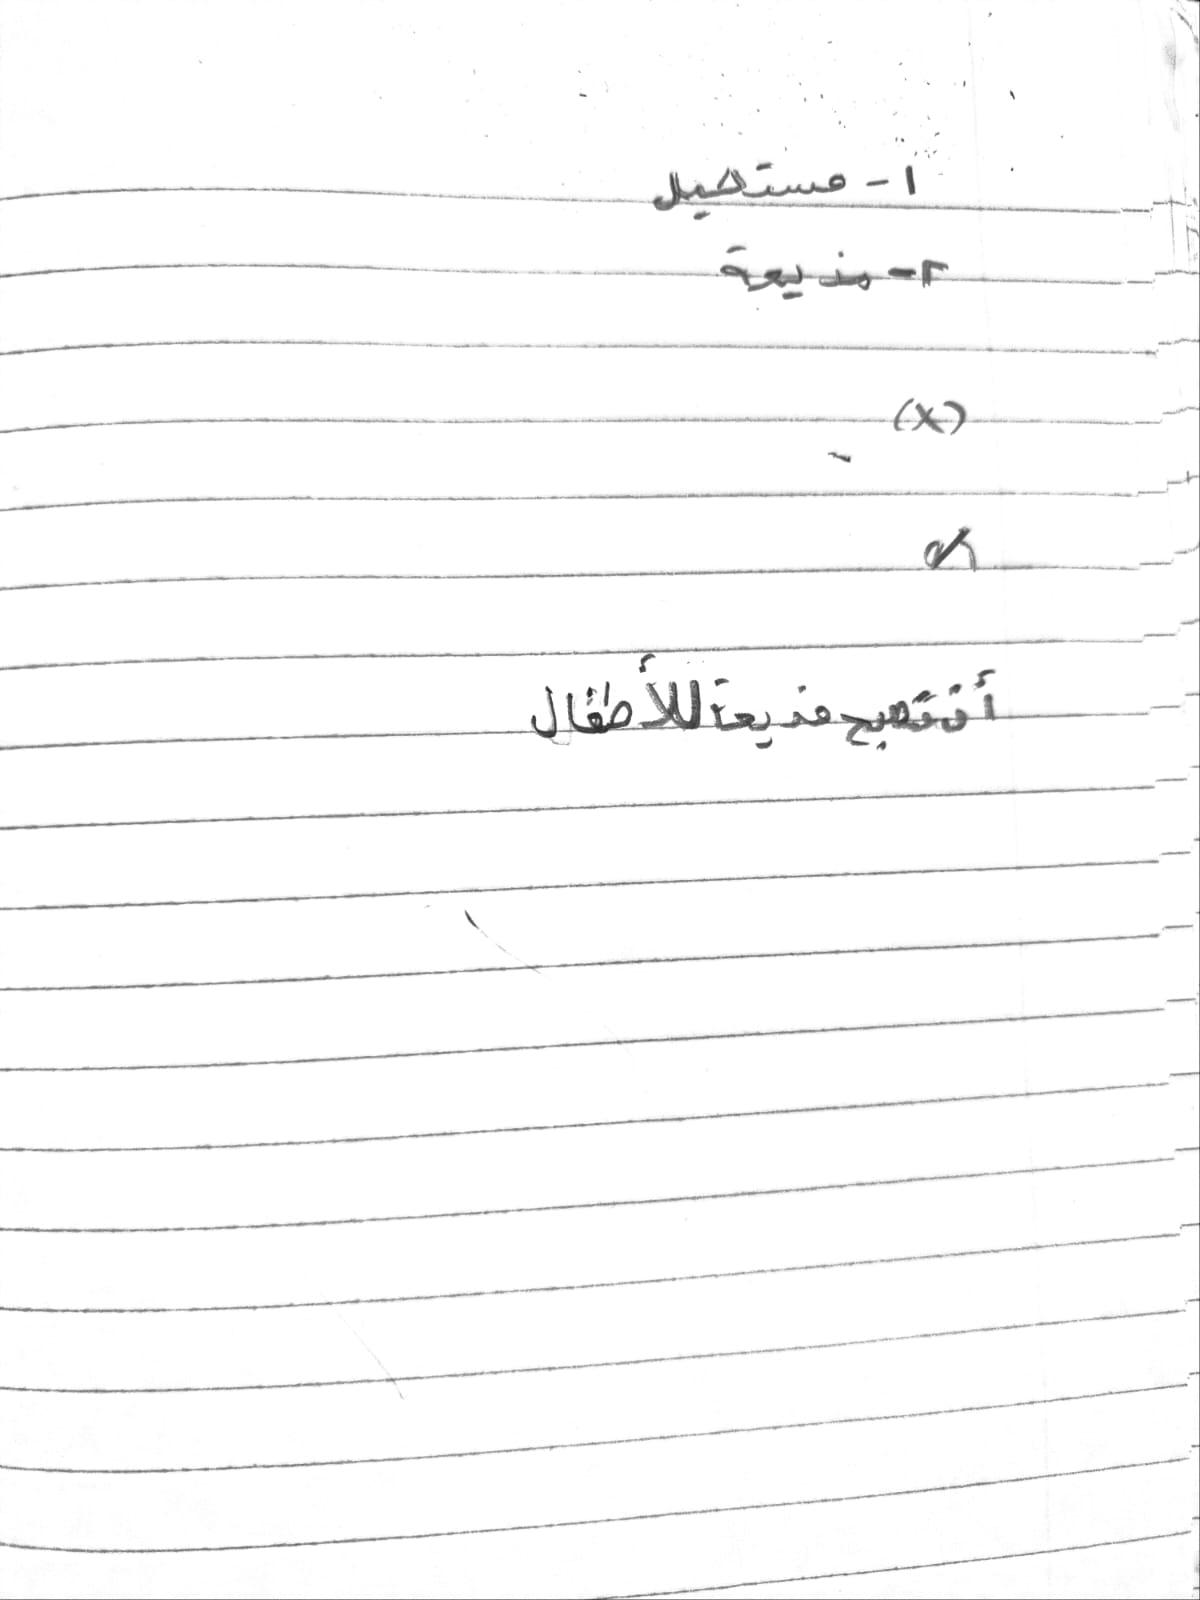 ١- مستحيل
٢- مذيعة
(X)
أن تصبح مذيعة للأطفال